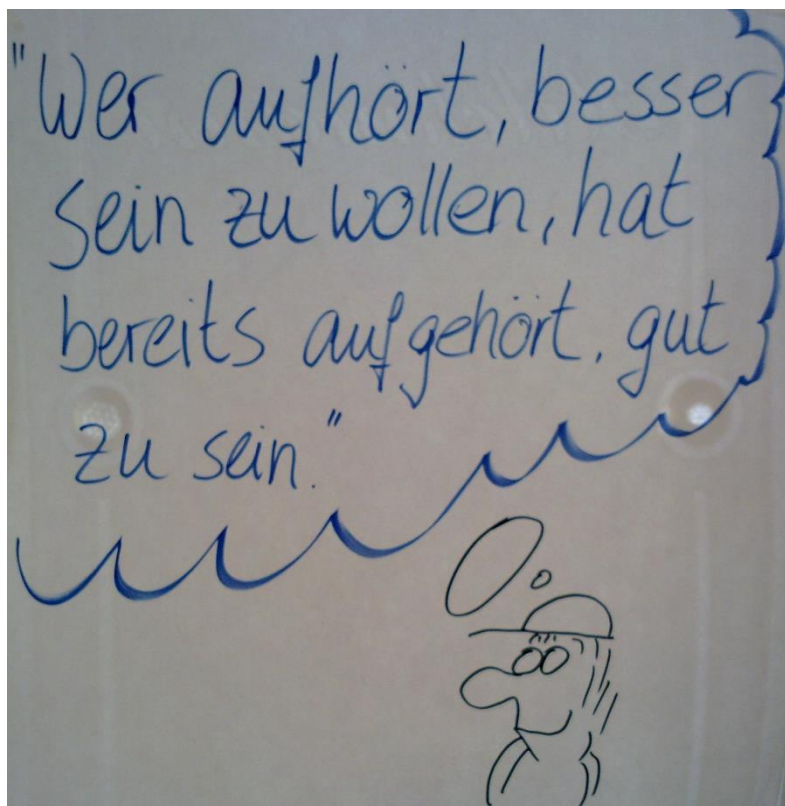 "Wer aufhört, besser
sein zu wollen, hat
bereits aufgehört, gut
zu sein."